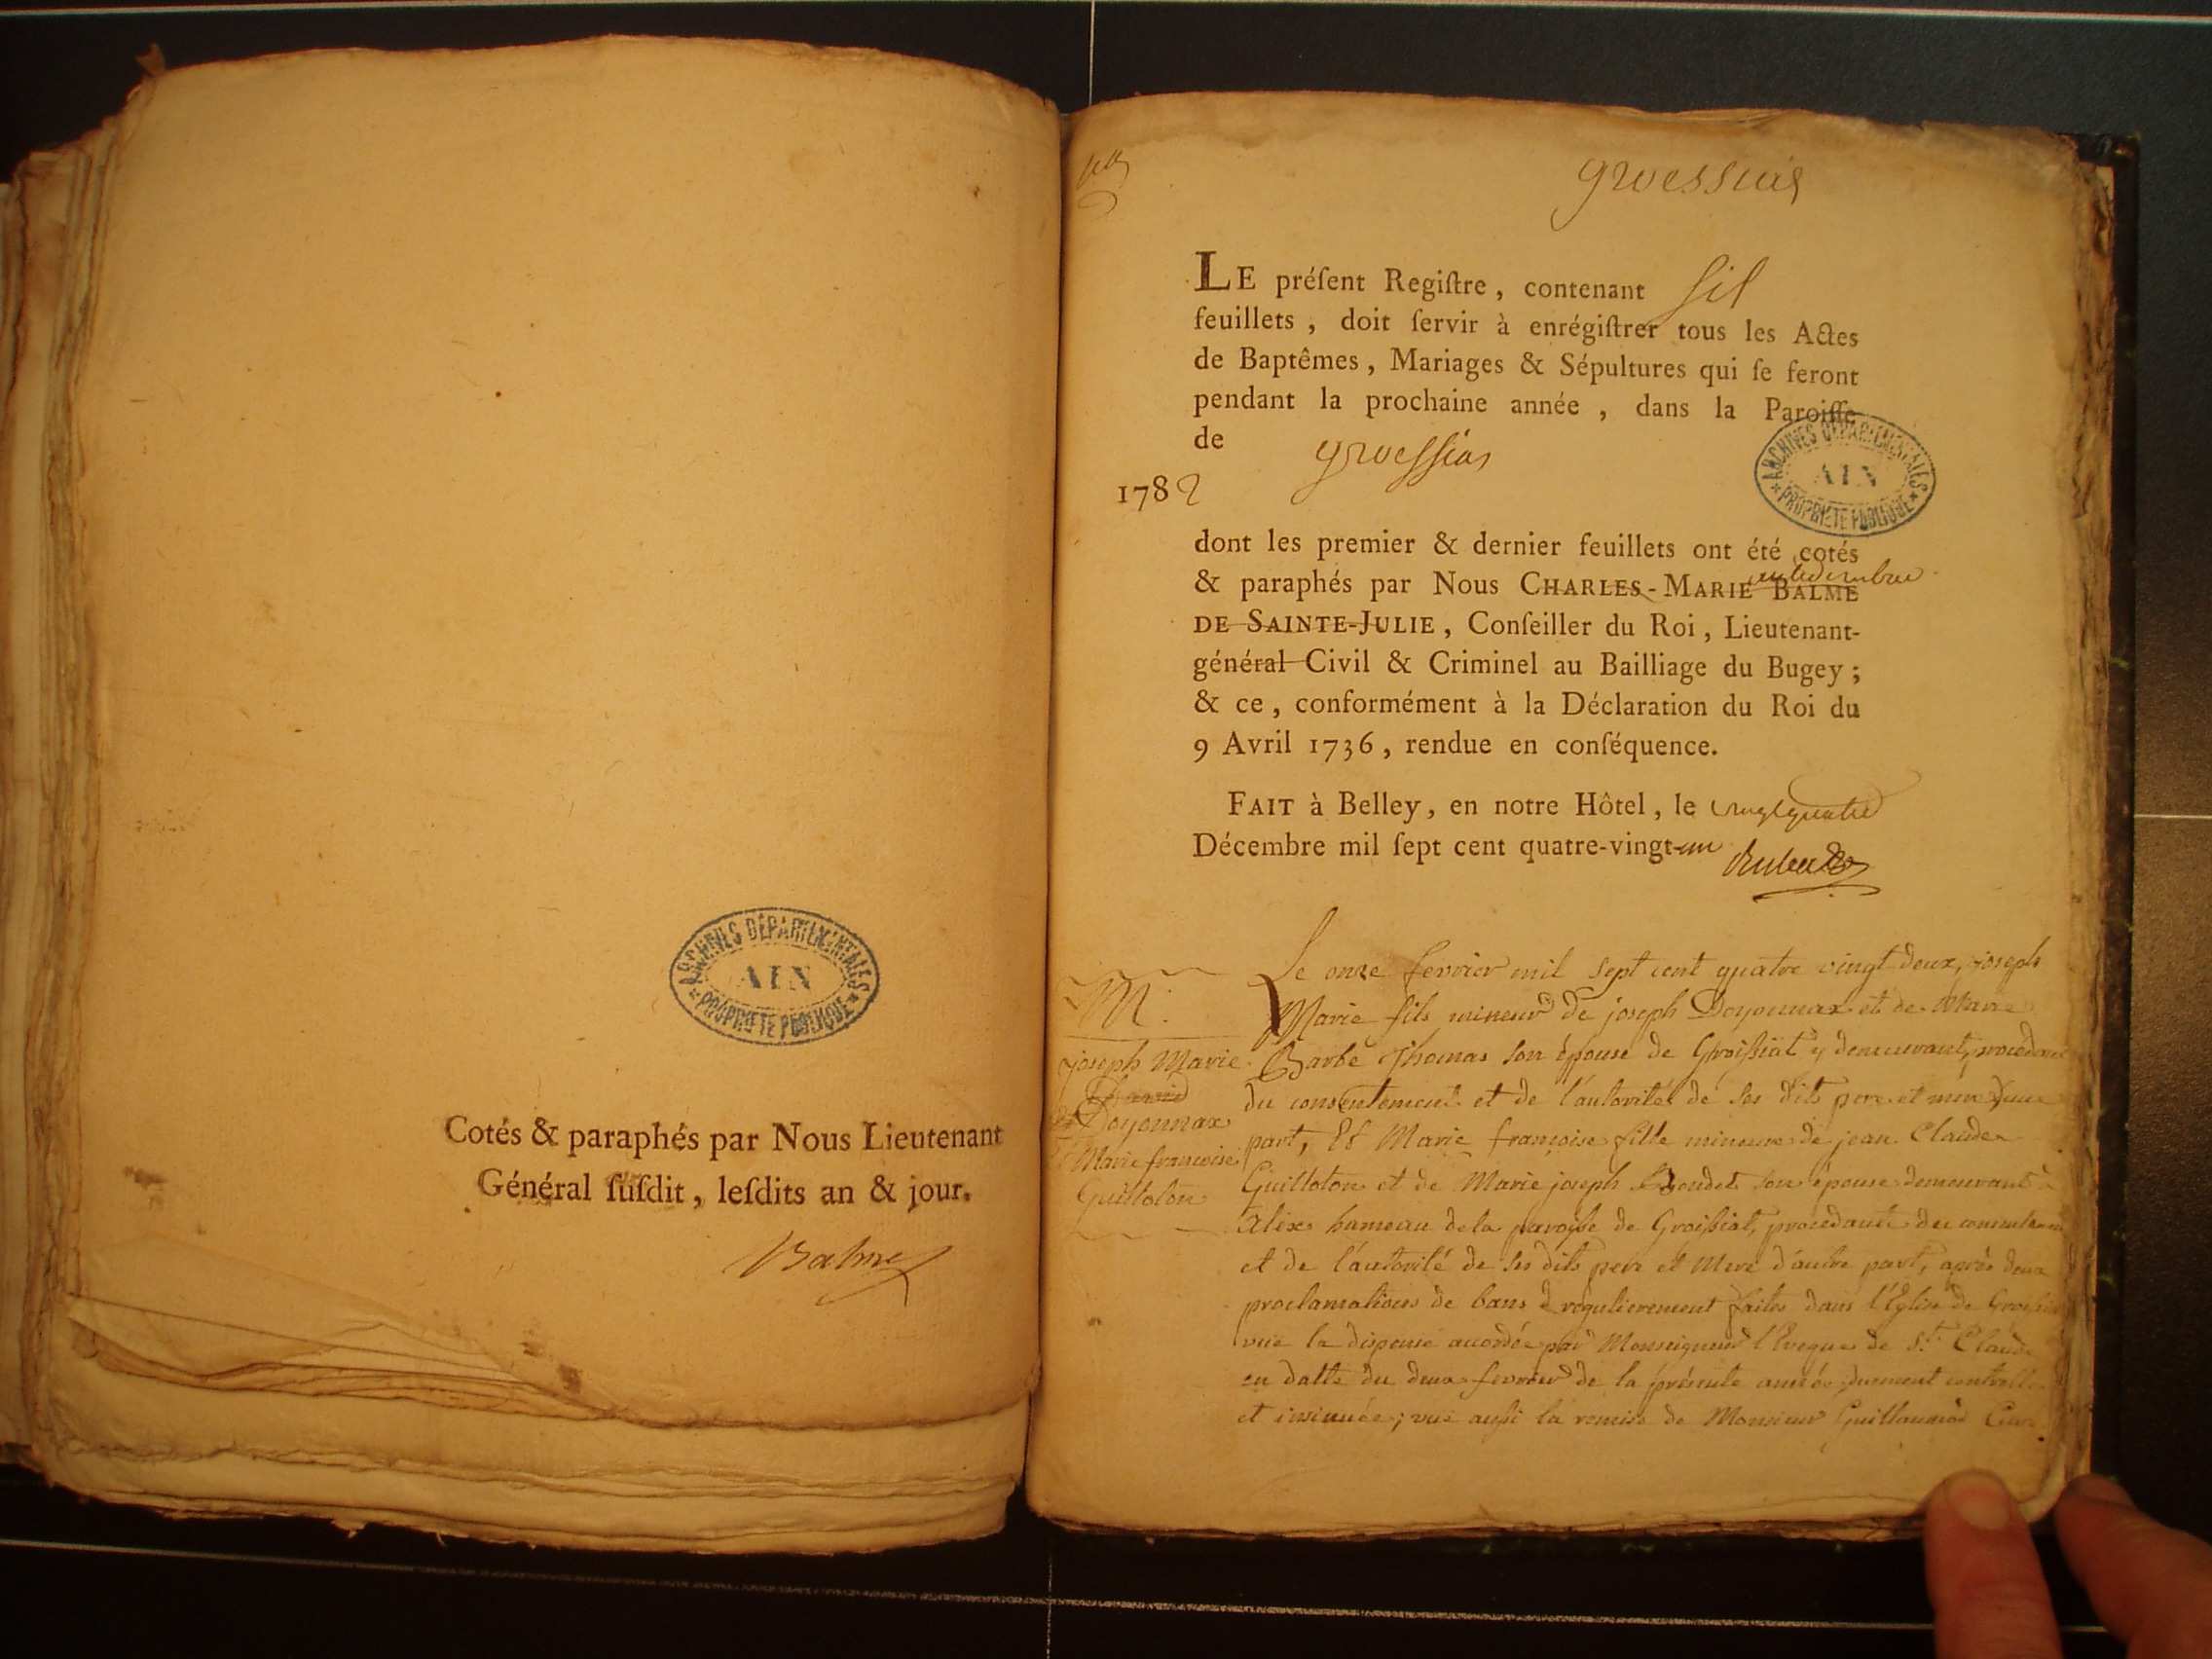 ARCHIVES DÉPARTEMENTALES
AIN
* PROPRIÉTÉ PUBLIQUE *
Cotés & paraphés par Nous Lieutenant
Général ſuſdit, leſdits an & jour.
Balme
LE préſent Regiſtre, contenant
feuillets, doit ſervir à enrégiſtrer tous les Actes
de Baptêmes, Mariages & Sépultures qui ſe feront
pendant la prochaine année, dans la Paroiſſe
de groeſſias
1782
ARCHIVES DÉPARTEMENTALES
AIN
* PROPRIÉTÉ PUBLIQUE *
dont les premier & dernier feuillets ont été cotés
& paraphés par Nous CHARLES-MARIE BALME
DE SAINTE-JULIE, Conſeiller du Roi, Lieutenant-
général Civil & Criminel au Bailliage du Bugey;
& ce, conformément à la Déclaration du Roi du
9 Avril 1736, rendue en conſéquence.
FAIT à Belley, en notre Hôtel, le vingtquatre
Décembre mil ſept cent quatre-vingt-un
M.
joseph Marie
Doyonnax
et
Marie francoise
Guilloton
Le onze fevrier mil sept cent quatre vingt deux, joseph
Marie fils mineur de joseph Doyonnax et de Marie
Barbe Thomas son épouse de Groißiat y demeurant, procedant
du consentement et de l'autorité de ses dits pere et mere d'une
part, Et Marie françoise fille mineure de jean Claude
Guilloton et de Marie joseph son épouse demeurant à
Alex hameau de la paroisse de Groißiat, procedante du consentement
et de l'autorité de ses dits pere et Mere d'autre part, après deux
proclamations de bans regulierement faites dans l'Eglise de Groißiat
vue la dispense accordée par Monseigneur l'Eveque de St. Claude
en datte du deux fevrier de la présente année duement controllée
et insinuée; vue außi la remise de Monsieur Guillaumod Curé